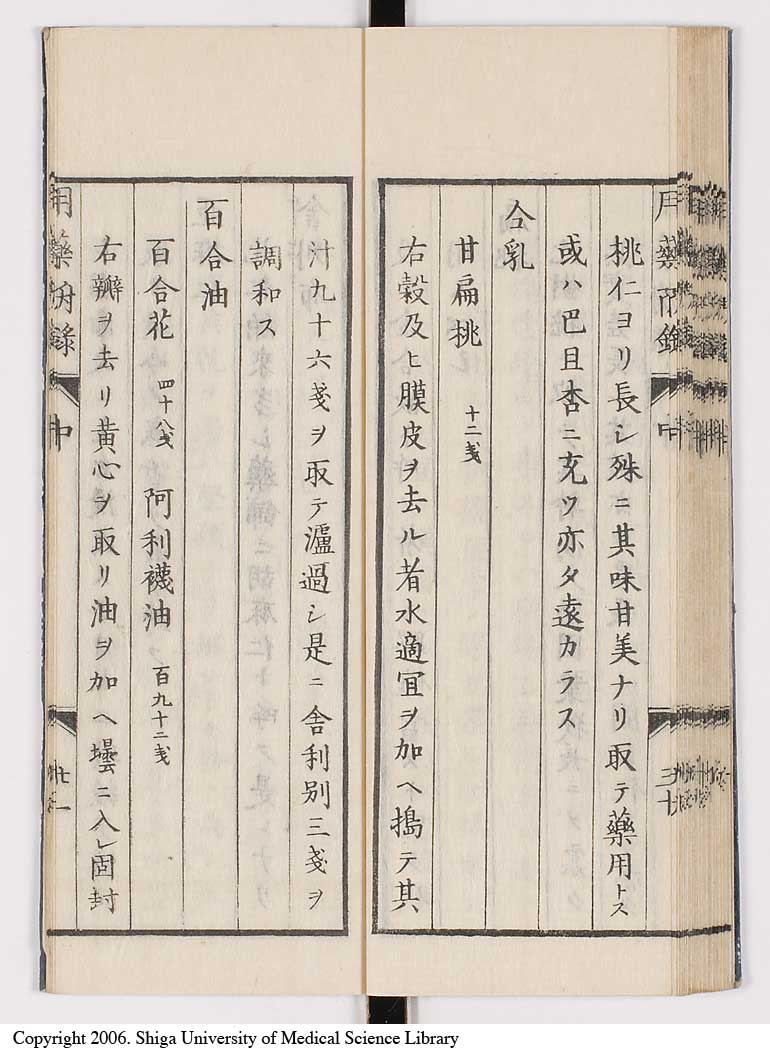 桃仁ヨリ長シ殊ニ其味甘美ナリ取テ藥用トス
或ハ巴且杏ニ充ツ亦タ遠カラス
仝乳
甘扁桃 十二戔
右穀及ヒ膜皮ヲ去ル者水適冝ヲ加ヘ搗テ其
三十
汁九十六戔ヲ取テ濾過シ是ニ舎利別三戔ヲ
調和ス
百合油
百合花 四十八戔 阿利襪油 百九十二戔
右瓣ヲ去リ黄心ヲ取リ油ヲ加ヘ壜ニ入レ固封
用藥 錄 中
Copyright 2006. Shiga University of Medical Science Library